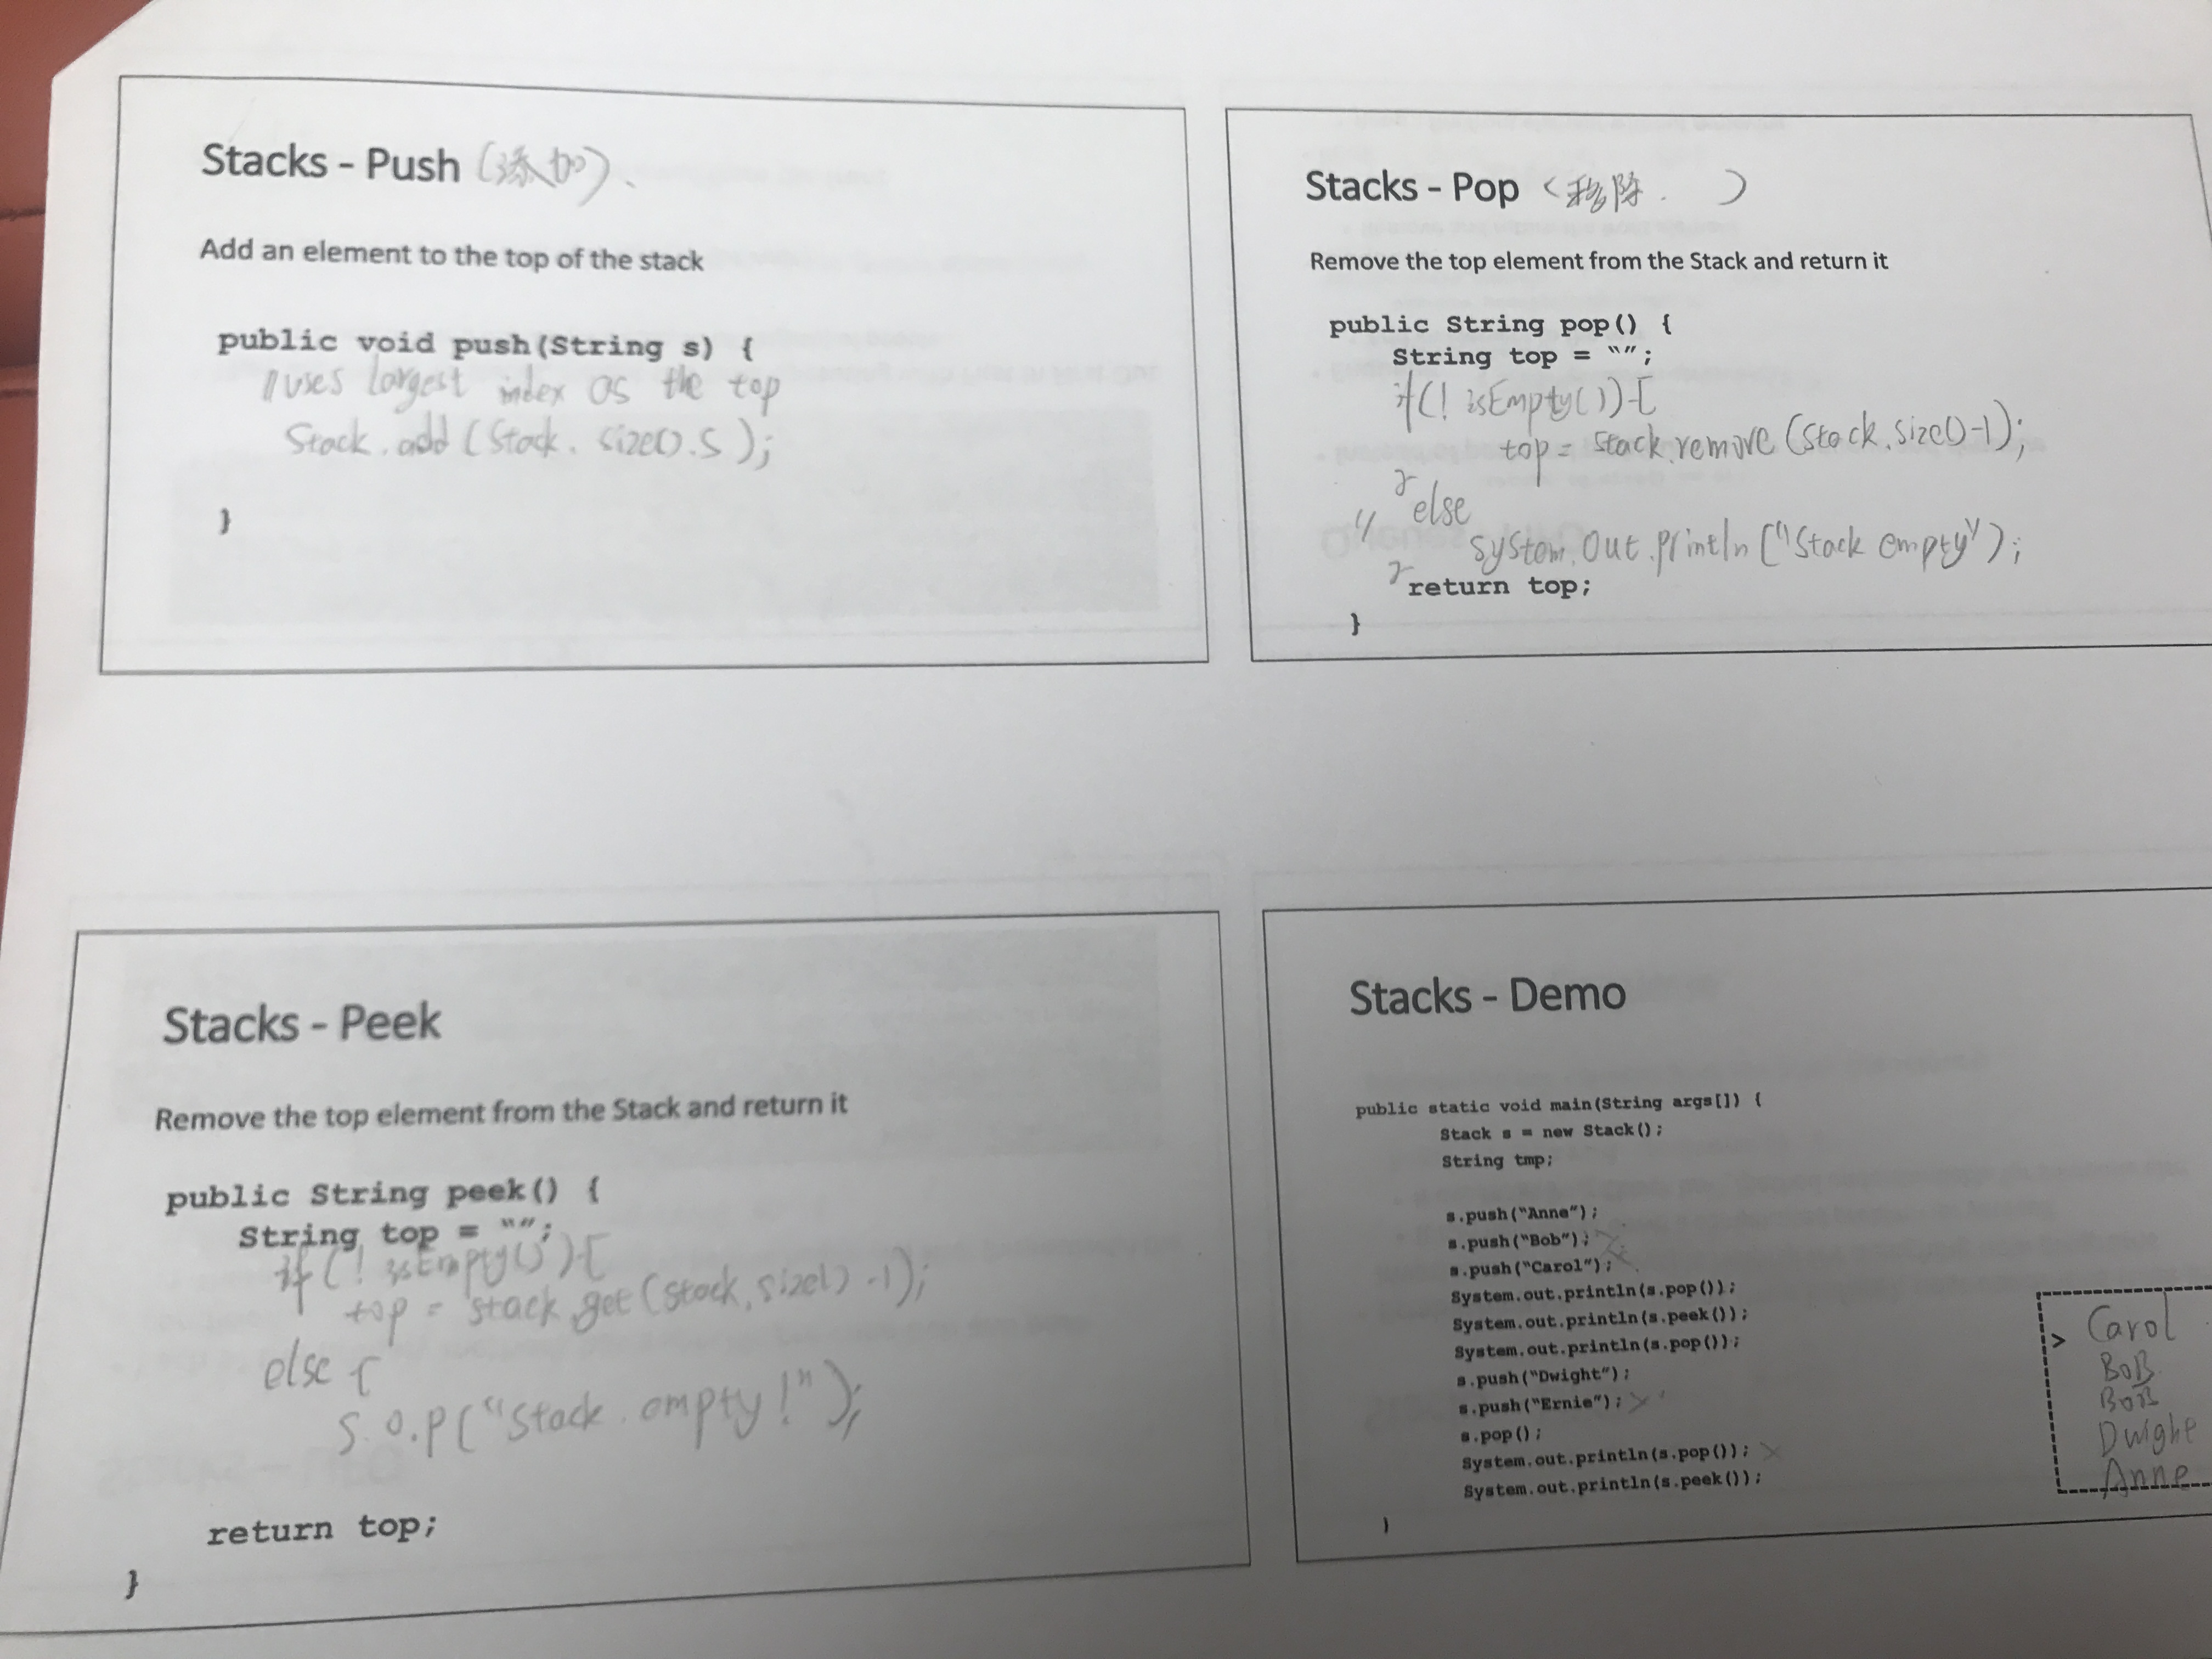 Stacks – Push (添加)、
Add an element to the top of the stack
public void push(String s) {
//uses largest index as the top
Stack.add(Stack.size().S);
}
Stacks – Pop <移除. )
Remove the top element from the Stack and return it
public String pop() {
String top = "";
if(!isEmpty()){
top = stack.remove(stack.size()-1);
}
else
System.out.println("Stack empty");
}
return top;
}
Stacks – Peek
Remove the top element from the Stack and return it
public String peek() {
String top = "";
if(!isEmpty()){
top = stack.get(stack.size()-1);
else {
S.O.P("stack.empty!");
return top;
}
Stacks – Demo
public static void main(String args[]) {
Stack s = new Stack();
String tmp;
s.push("Anne");
s.push("Bob");
s.push("Carol");
System.out.println(s.pop());
System.out.println(s.peek());
System.out.println(s.pop());
s.push("Dwight");
s.push("Ernie");
s.pop();
System.out.println(s.pop());
System.out.println(s.peek());
}
> Carol
BoB
BoB
Dwight
Anne